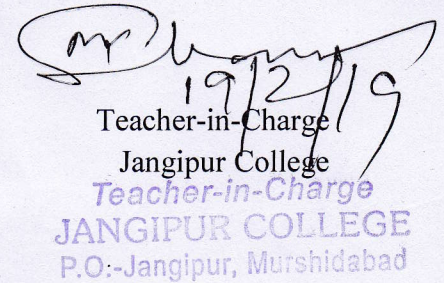 19/2/19
Teacher-in-Charge
Jangipur College
Teacher-in-Charge
JANGIPUR COLLEGE
P.O:-Jangipur, Murshidabad